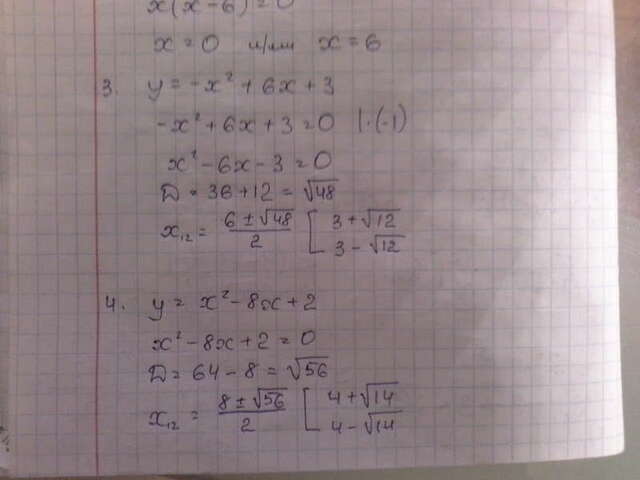 x(x-6)=0
x=0 и/или x=6
3. y=-x²+6x+3
-x²+6x+3=0 |·(-1)
x²-6x-3=0
D=36+12=√48
x₁₂=(6±√48)/2 [3+√12
3-√12
4. y=x²-8x+2
x²-8x+2=0
D=64-8=√56
x₁₂=(8±√56)/2 [4+√14
4-√14